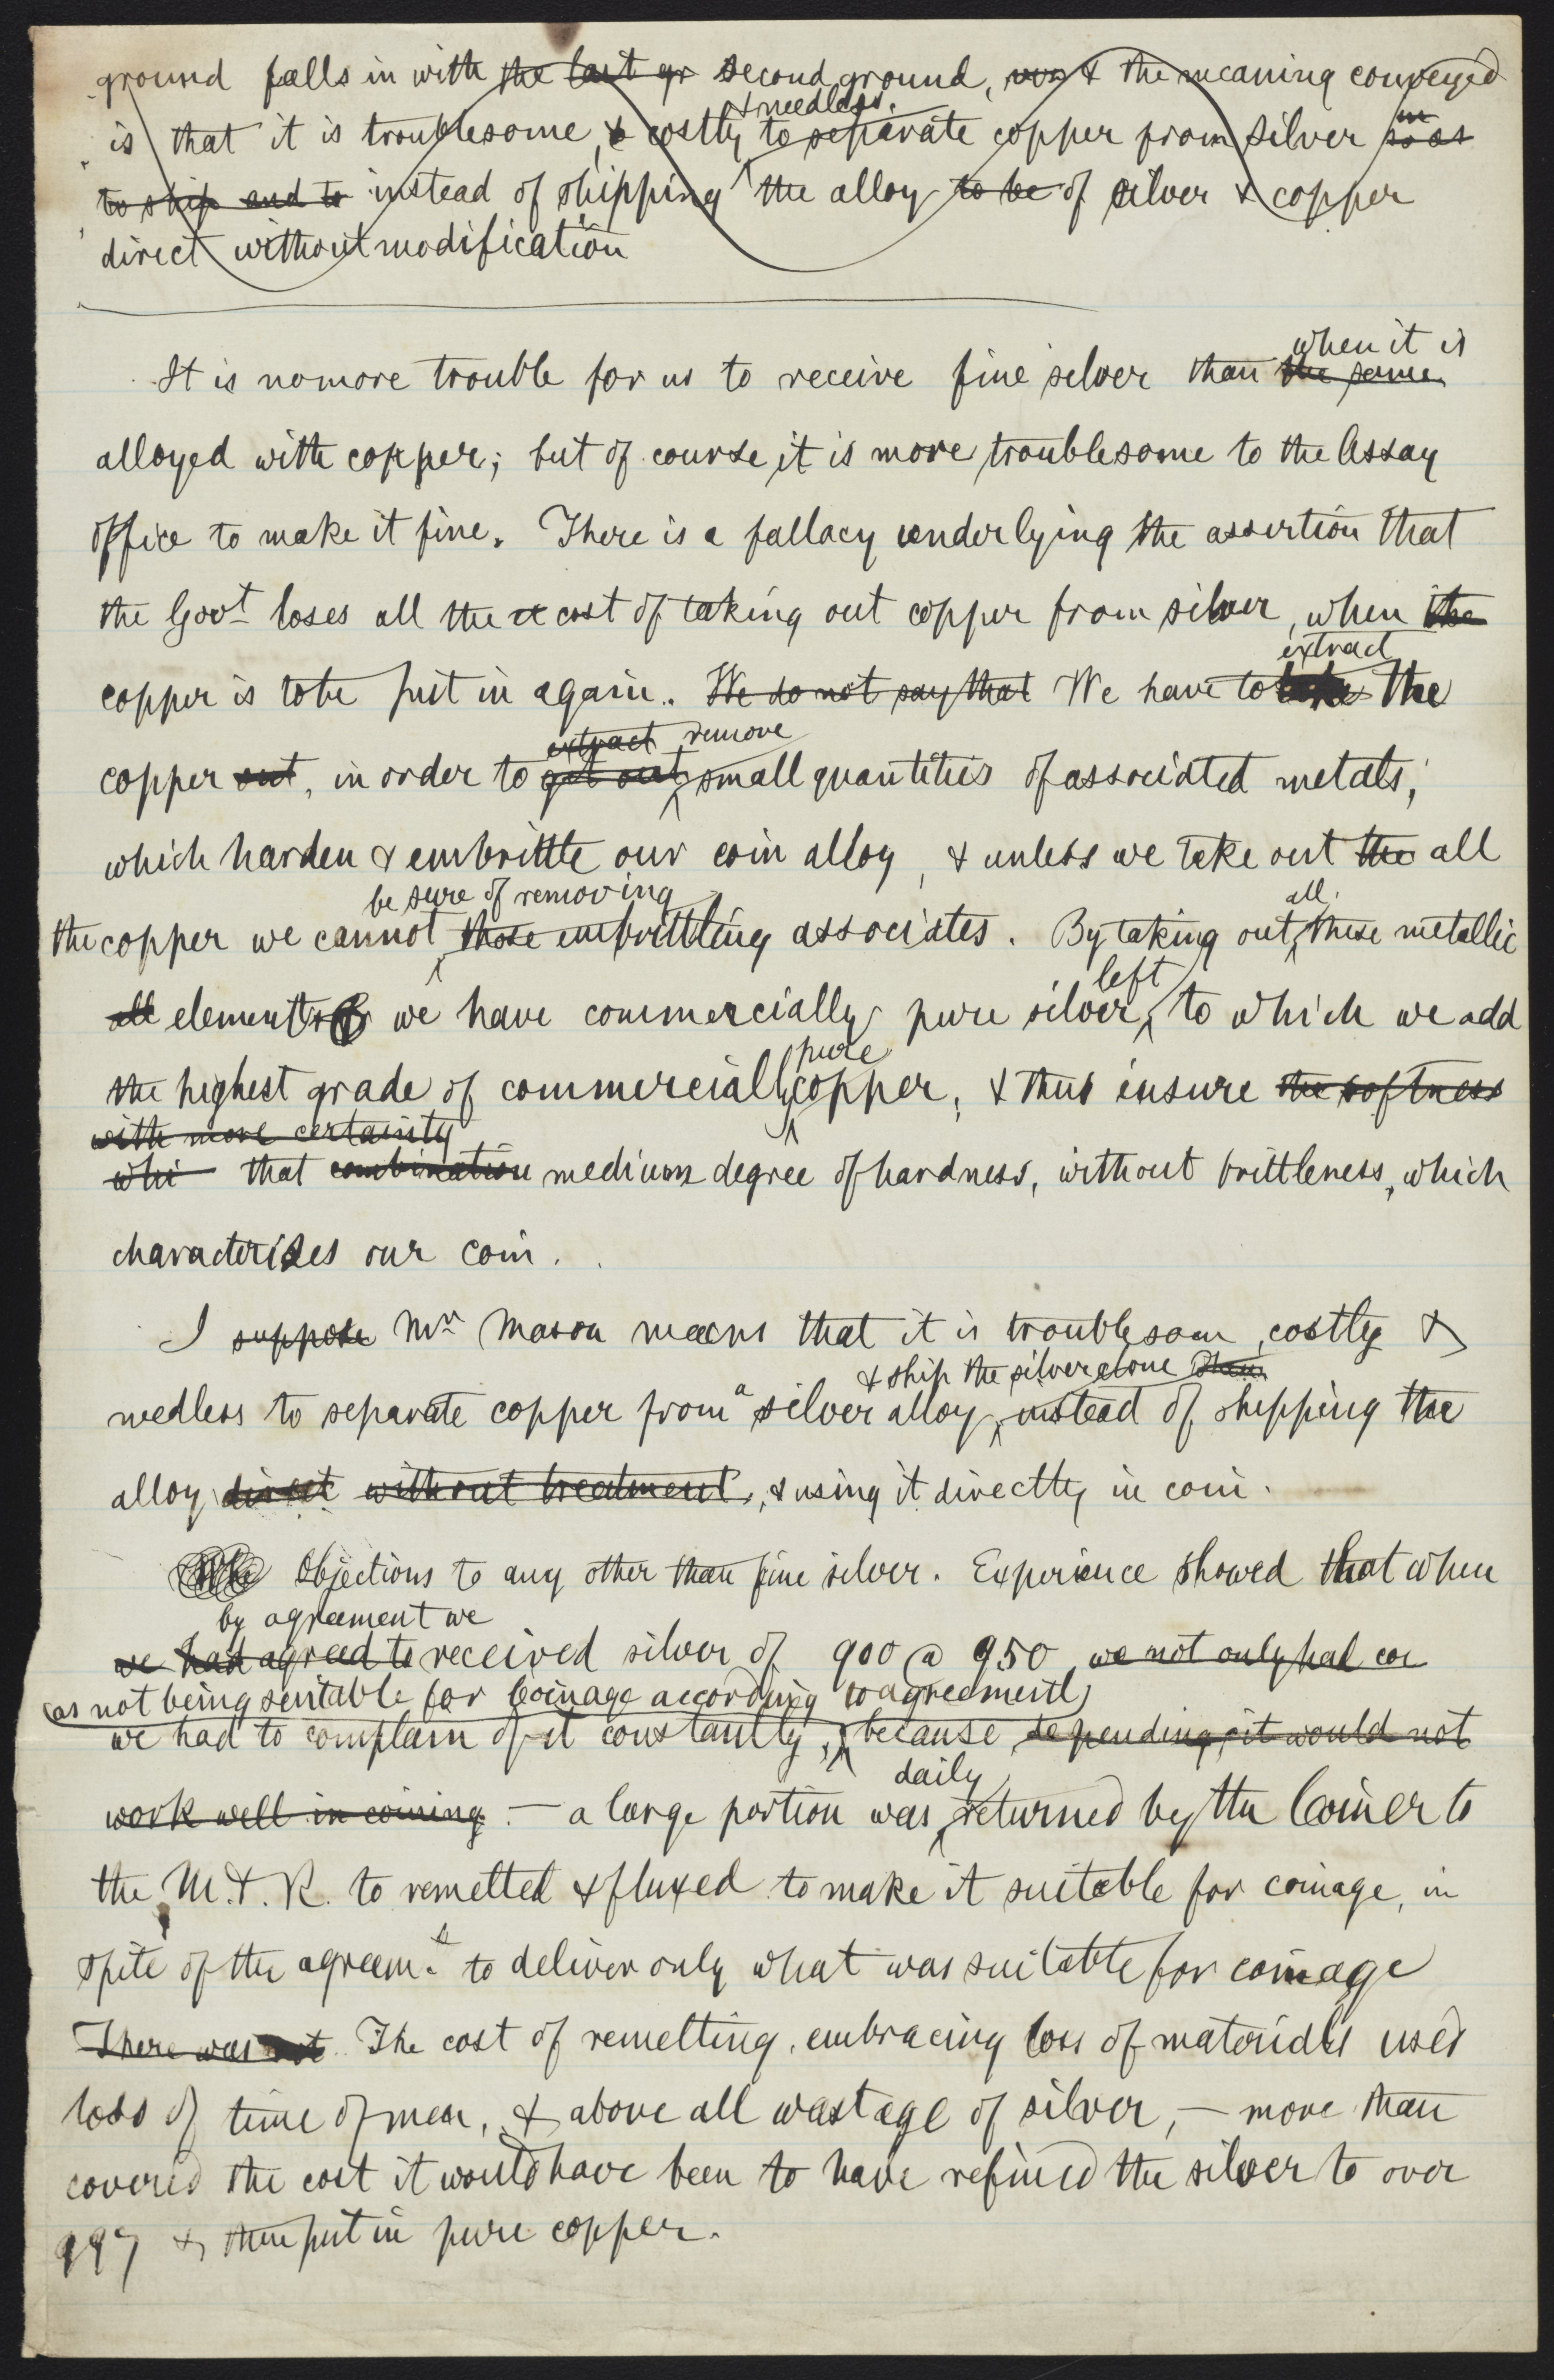 ground falls in with the last gr second ground, & the meaning conveyed
& needless.
is that it is troublesome, & costly to separate copper from silver so as
to ship and to instead of shipping the alloy to be of silver & copper
direct without modification
when it is
It is no more trouble for us to receive fine silver than the same
alloyed with copper; but of course it is more troublesome to the Assay
Office to make it fine. There is a fallacy underlying the assertion that
the Govt loses all the cost of taking out copper from silver, when the
extract
copper is to be put in again. We do not say that We have to take the
extract remove
copper out, in order to get out small quantities of associated metals,
which harden & embrittle our coin alloy, & unless we take out the all
be sure of removing all
the copper we cannot those embrittling associates. By taking out these metallic
left
all elements we have commercially pure silver, to which we add
pure
the highest grade of commercially copper, & thus insure the softness
with more certainty
whi that combination medium degree of hardness, without brittleness, which
characterizes our coin.
I suppose Mr Mason means that it is troublesom, costly &
& ship the silver alone than
needless to separate copper from a silver alloy, instead of shipping the
alloy direct without treatment, & using it directly in coin.
The Objections to any other than fine silver. Experience showed that when
by agreement we
we had agreed to received silver of 900 @ 950, we not only had co
(as not being suitable for coinage according to agreement)
we had to complain of it constantly, because depending, it would not
daily
work well in coining — a large portion was returned by the Coiner to
the M. & R. to remelted & fluxed to make it suitable for coinage, in
spite of the agreemt to deliver only what was suitable for coinage
There was not The cost of remelting, embracing loss of materials used
loss of time of men, & above all wastage of silver, — more than
covered the cost it would have been to have refined the silver to over
997 & then put in pure copper.